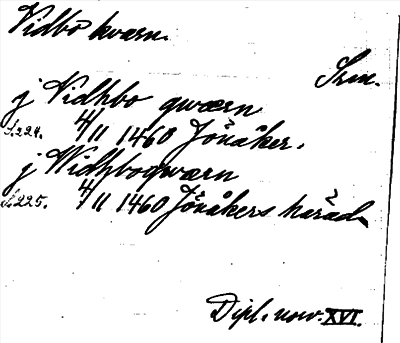 Vidbo kvarn.
Srm.
j Vidhbo qwærn
S.224. 4/11 1460 Jönåker.
j Widhboqwærn
S.225. 4/11 1460 Jönåkers härad.
Dipl. norv. XVI.